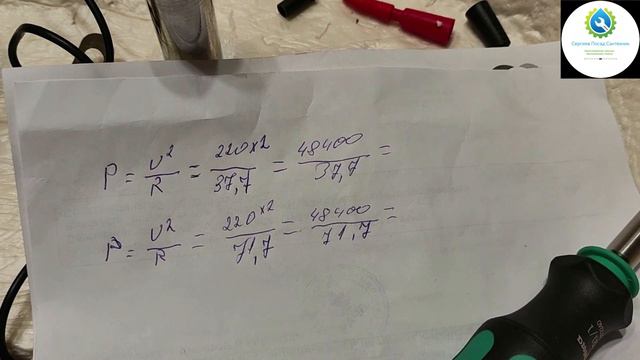 Сергиев Посад Сантехник
P = U² / R = 220×2 / 37,7 = 48400 / 37,7 =
P = U² / R = 220×2 / 71,7 = 48400 / 71,7 =